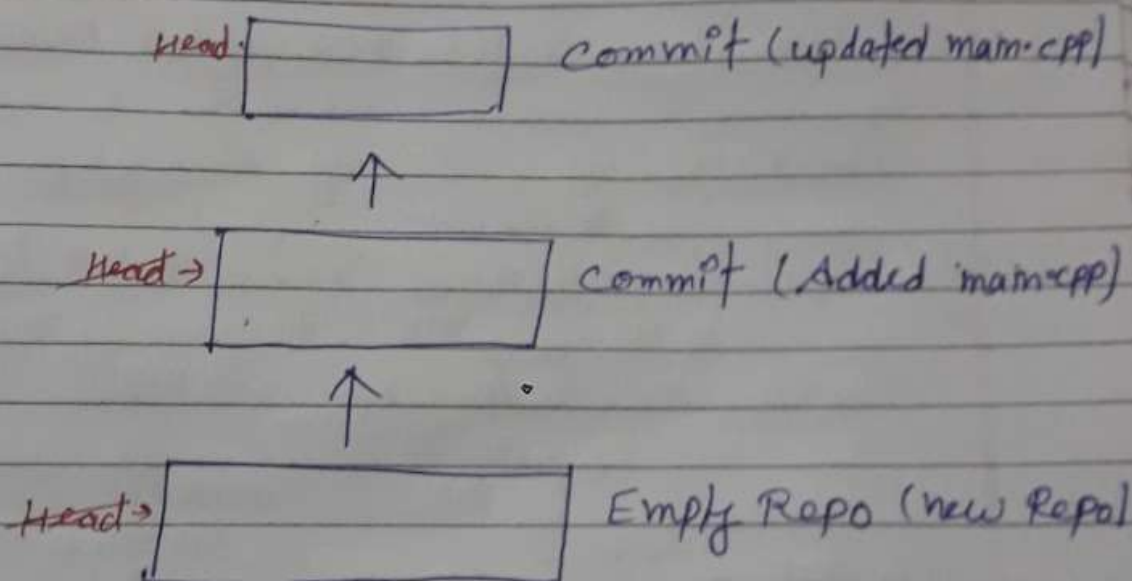 Head. Commit (updated main.cpp)
Head → Commit (Added main.cpp)
Head → Empty Repo (new Repo)